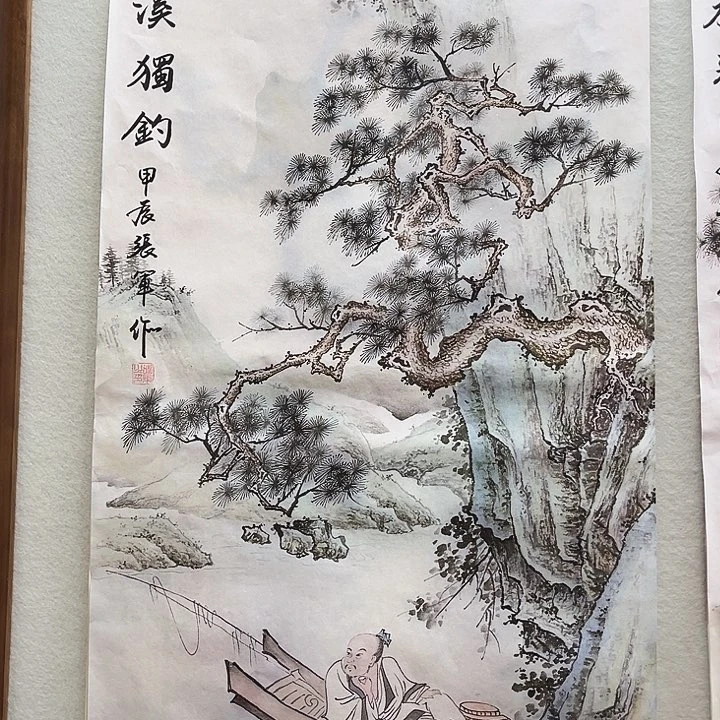 溪獨釣
甲辰張軍作